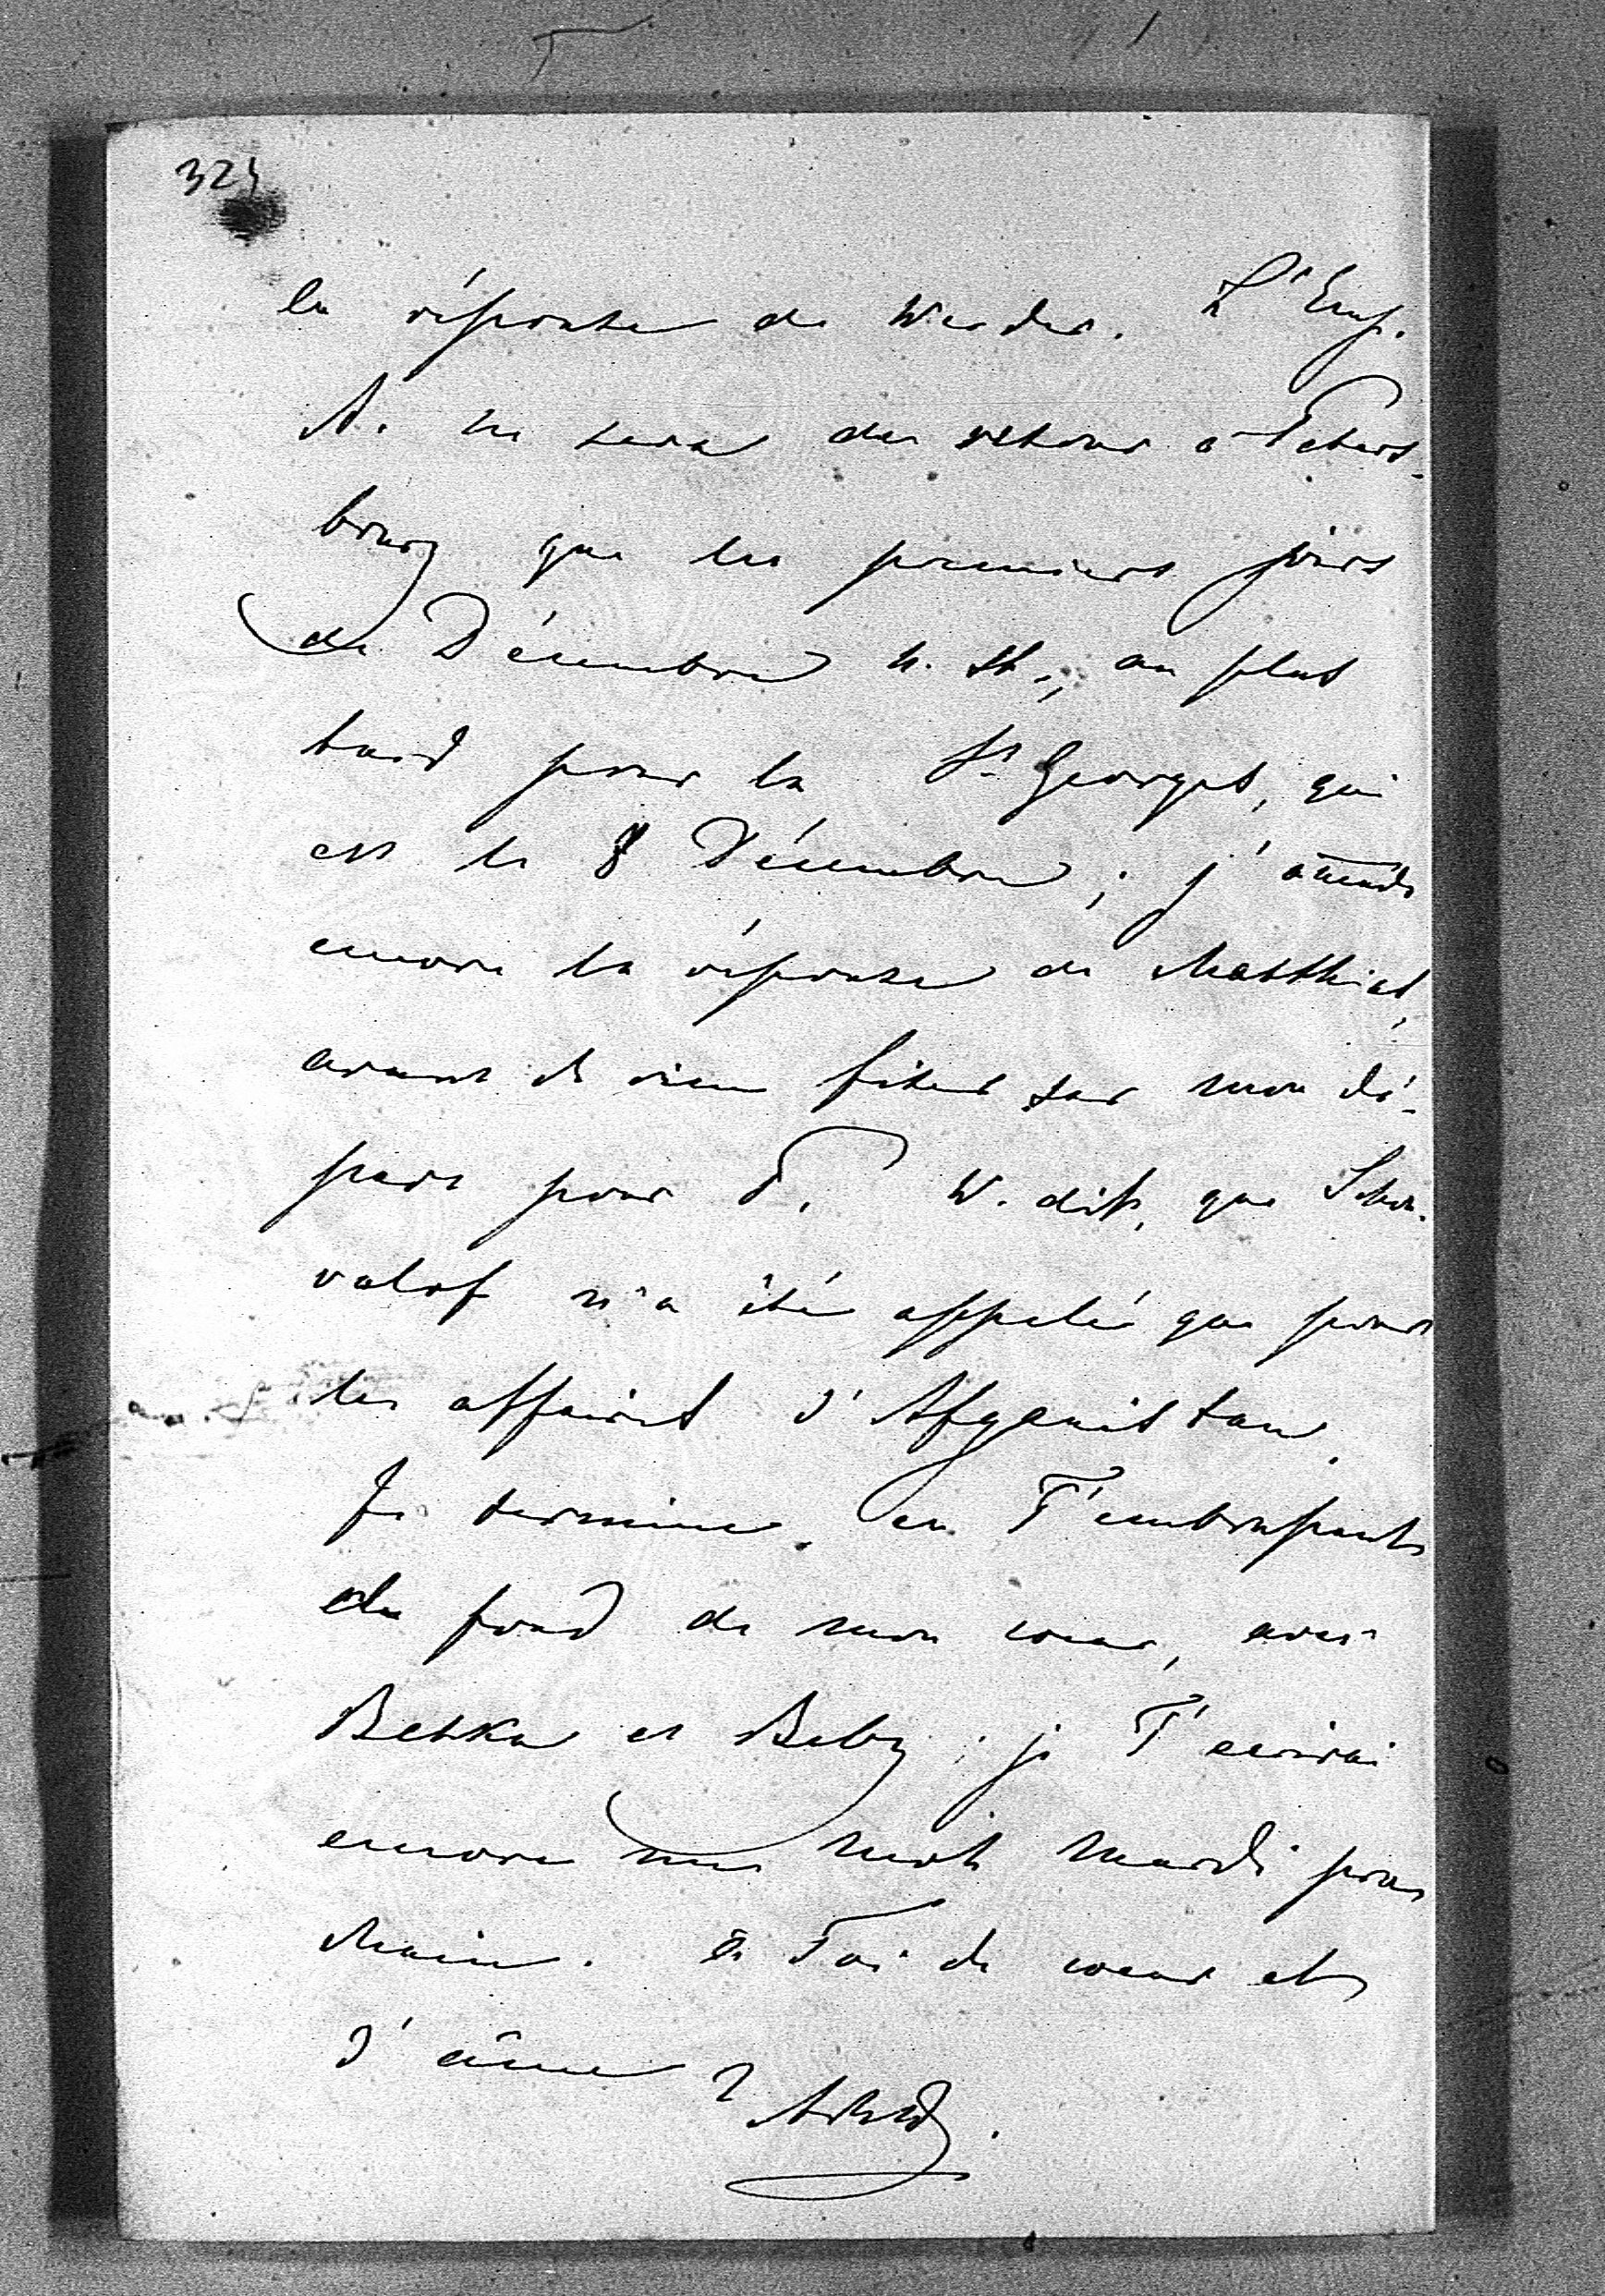 324
la réponse de Werder. L'Emp.
A. ne sera de retour à Peters-
bourg que les premiers jours
de Décembre n. st., au plus
tard pour la St Georges, qui
est le 8 Décembre; j'attends
encore la réponse de Matthias,
avant de rien fixer sur mon dé-
part pour P. W. dit, que Schou-
valof n'a été appelé que pour
les affaires d'Afganistan.
Je termine, en T'embrassant
du fond de mon coeur, avec
Betka et Baby; je T'écrirai
encore un mot mardi pour
Main. à Toi de coeur et
d'âme